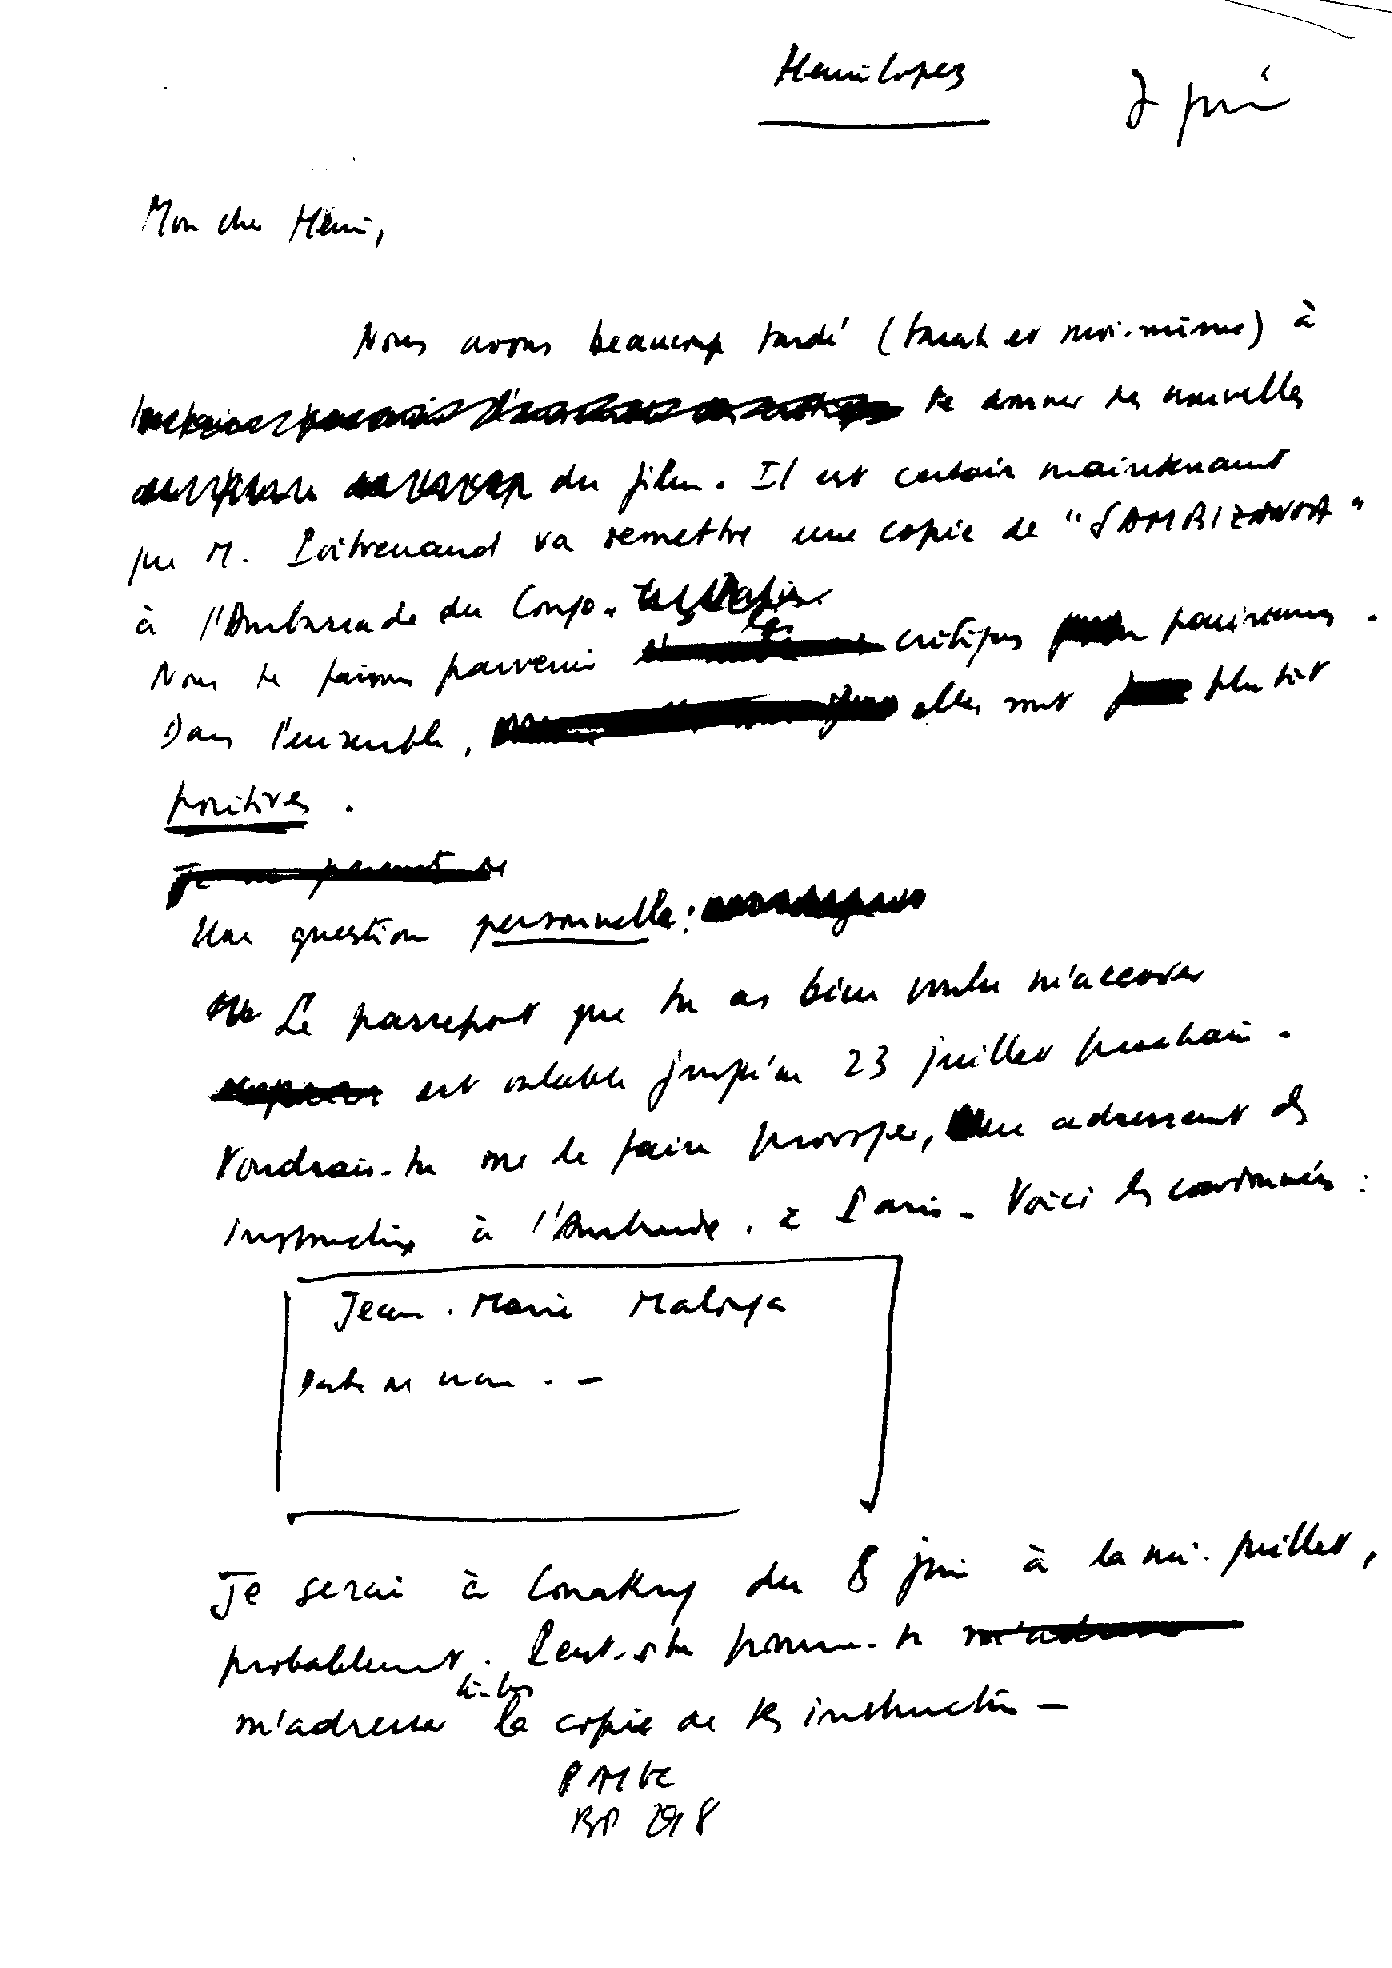 Henri Lopez
7 juin
Mon cher Henri,
Nous avons beaucoup tardé (Sarah et moi-même) à
te donner des nouvelles
du film. Il est certain maintenant
que M. Poitrenaud va remettre une copie de "SAMBIZANGA"
à l'Ambassade du Congo.
Nous te faisons parvenir les critiques parisiennes.
Dans l'ensemble, elles sont plutôt
positives.
Je me permets de
Une question personnelle :
Le passeport que tu as bien voulu m'accorder
est valable jusqu'au 23 juillet prochain.
Voudrais-tu me le faire proroger, en adressant des
instructions à l'Ambassade, à Paris - Voici les coordonnées :
Jean-Marie Malonga
Date de nais. . -
Je serai à Conakry du 8 juin à la mi-juillet,
probablement. Peut-être pourras-tu m'adresser
m'adresser là-bas la copie de tes instructions -
BP 298